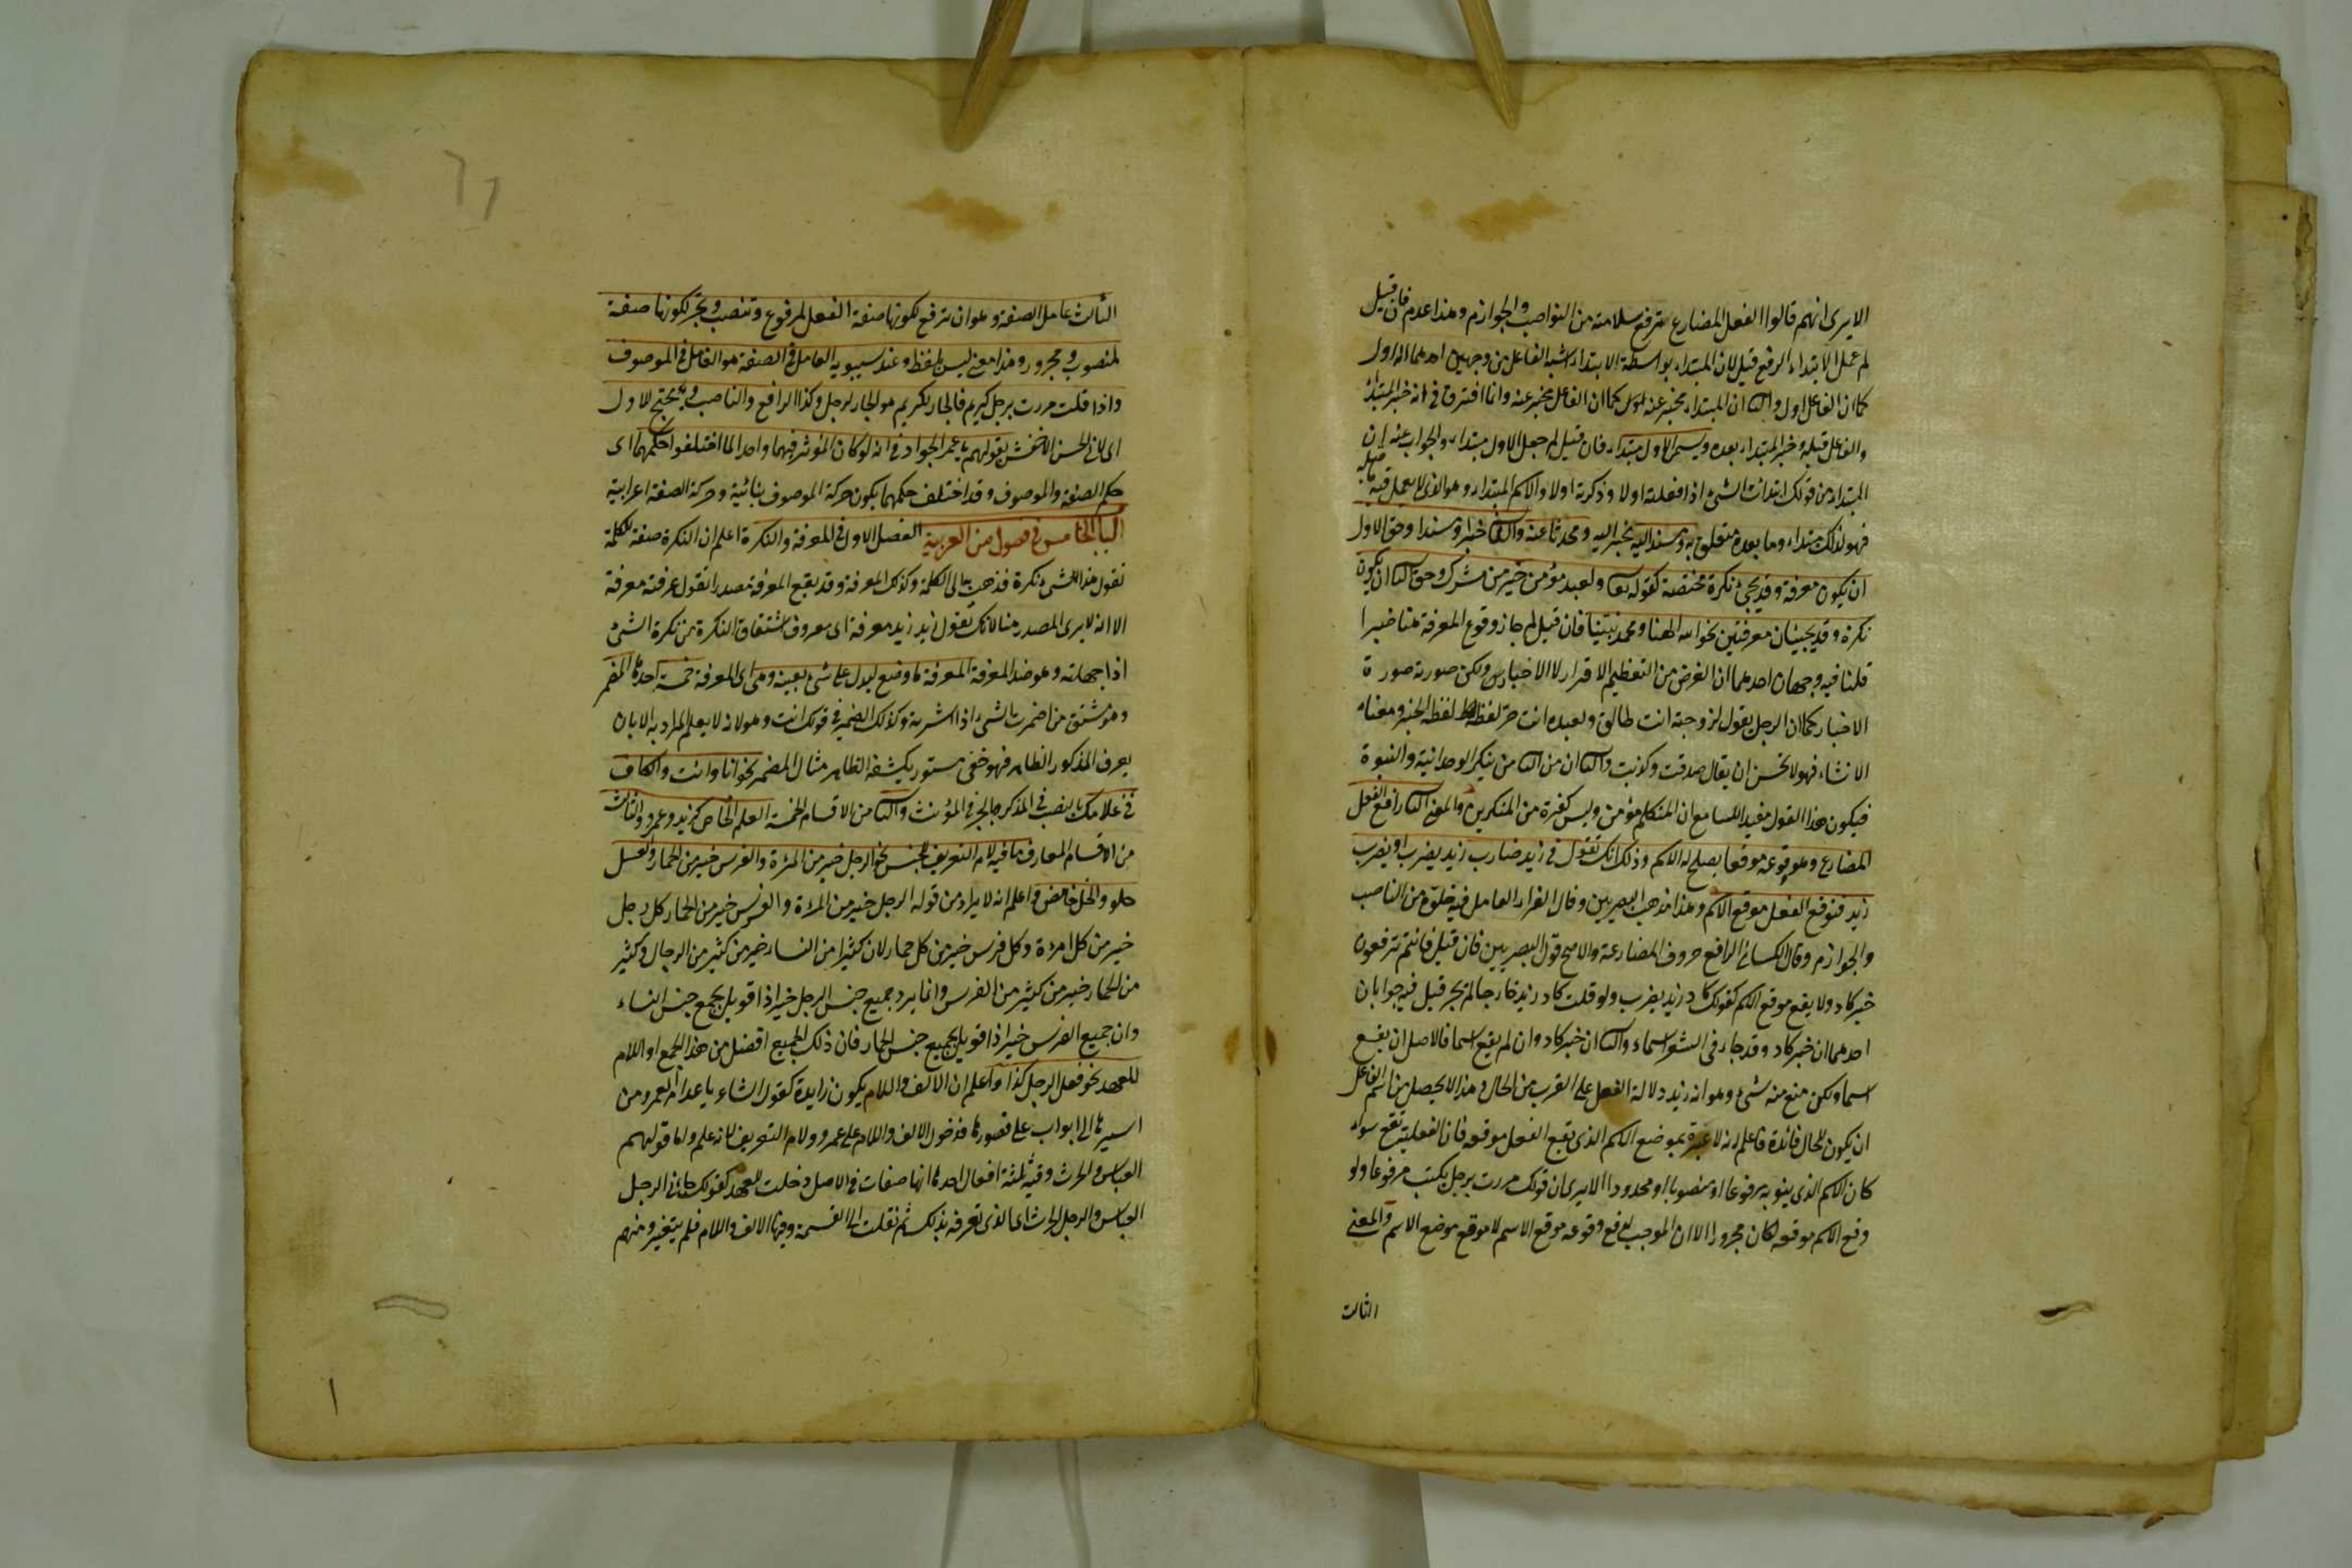 الا يرى انهم قالوا الفعل المضارع يترفع سلامته من النواصب والجوازم وهذا عدم فان قيل
لم عمل الابتداء الرفع قيل لان المبتداء بواسطة الابتداء اشبه الفاعل من وجهين احدهما انه اول
كما ان الفاعل اول والثا ان المبتداء مخبر عنه كما ان الفاعل مخبر عنه وانما افترق في انه خبر المبتدأ
والفاعل قبله وخبر المبتداء بعده ويسمى الاول مبتداء فان قيل لم جعل الاول مبتداء والجواب عنه ان
المبتداء من قولك ابتدات الشئ اذا فعلته اولا وذكرته اولا والاسم المبتداء هو الذى لا يعمل فيه ما قبله
فهو لذلك مبتداء وما بعده متعلق به ومسندا اليه ومخبر اليه ومحدثا عنه والثا خبرا ومسندا وحق الاول
ان يكون معرفة وقد يجئ نكرة مختصة كقوله تعا ولعبد مؤمن خير من مشرك وحق الثا ان يكون
نكرة وقد يجيئان معرفتين نحو الله الهنا ومحمد نبينا فان قيل لم جاز وقوع المعرفة هنا خبرا
قلنا فيه وجهان احدهما ان الغرض من التعظيم الاقرار لا الاخبار ولكن صورته صورة
الاخبار كما ان الرجل يقول لزوجته انت طالق ولعبده انت حر لفظه لفظ الخبر ومعناه
الانشاء فهو لا يحسن ان يقال صدقت وكذبت والثا ان من الناس من ينكر الوحدانية والنبوة
فيكون هذا القول مفيدا للسامع ان المتكلم مؤمن وليس كغيره من المنكرين والمعنى الثا رافع الفعل
المضارع وهو وقوعه موقعا يصلح له الاسم وذلك انك تقول في زيد ضارب زيد يضرب او يضرب
زيد فتوقع الفعل موقع الاسم وهذا مذهب البصريين وقال الفراء العامل فيه خلوه من الناصب
والجوازم وقال الكسائى الرافع حروف المضارعة والاصح قول البصريين فان قيل فانتم ترفعون
خبر كاد ولا يقع موقع الاسم كقولك كاد زيد يضرب ولو قلت كاد زيد خارجا لم يجز قيل فيه جوابان
احدهما ان خبر كاد وقد جاء في الشعر اسماء والثا ان خبر كاد وان لم يقع اسما فالاصل ان يقع
اسما ولكن منع منه شئ وهو انه زيد دلالة الفعل على القرب من الحال وهذا لا يحصل من اسم الفاعل
ان يكون للحال فائدة فاعلم انه لا عبرة بموضع الاسم الذى يقع الفعل موقعه فان الفعلية تقع سواء
كان الاسم الذى ينوبه مرفوعا او منصوبا او مجرورا الا يرى ان قولك مررت برجل يكتب مرفوعا ولو
وقع الاسم موقعه لكان مجرورا الا ان الموجب للرفع وقوعه موقع الاسم لا موقع موضع الاسم والمعنى
الثالث
الثالث عامل الصفة وهو ان ترفع لكونها صفة الفعل لمرفوع وتنصب وتجر لكونها صفة
لمنصوب ومجرور وهذا معنى ليس بلفظ وعند سيبويه العامل في الصفة هو العامل في الموصوف
واذا قلت مررت برجل كريم فالجار بكريم هو الجار لرجل وكذا الرافع والناصب ويحتج للاول
اى لابى الحسن الاخفش بقولهم يا عمر الجواد في انه لو كان المؤثر فيهما واحدا لما اختلفوا حكمهما اى
حكم الصفة والموصوف وقد اختلف حكمهما بكون حركة الموصوف بنائية وحركة الصفة اعرابية
الباب الخامس في فصول من العربية الفصل الاول في المعرفة والنكرة اعلم ان النكرة صفة للكلمة
تقول هذا الشئ نكرة فذهب بها الى الكلمة وكذلك المعرفة وقد يقع المعرفة مصدرا تقول عرفته معرفة
الا انه لا يرى المصدر هنا لانك تقول زيد زيد معرفة اى معروف اشتقاق النكرة من نكرة الشئ
اذا جهلته وهو ضد المعرفة المعرفة ما وضع ليدل على شئ بعينه وهى اى المعرفة خمسة احدها المضمر
وهو مشتق من اضمرت الشئ اذا سترته وكذلك الضمير في قولك انت وهو لانه لا يعلم المراد به الا بان
يعرف المذكور الظاهر فهو خفى مستور يكشفه الظاهر مثال المضمر نحو انا وانت والكاف
في غلامك بالنصب في المذكر وبالجر في المؤنث والثا من الاقسام الخمسة العلم الخاص كزيد وعمرو والثالث
من الاقسام المعارف ما فيه لام التعريف للجنس نحو الرجل خير من المرءة والفرس خير من الحمار والعسل
حلو والخل حامض واعلم انه لا يراد من قوله الرجل خير من المرءة والفرس خير من الحمار كل رجل
خير من كل امرءة وكل فرس خير من كل حمار لان كثيرا من النساء خير من كثير من الرجال وكثير
من الحمار خير من كثير من الفرس وانما يرد جميع جنس الرجل خيرا اذا قوبل بجمع جنس النساء
وان جميع الفرس خيرا اذا قوبل بجميع جنس الحمار فان ذلك الجميع افضل من هذا الجمع او اللام
للعهد نحو فعل الرجل كذا واعلم ان الالف واللام يكون زايدة كقول الشاعر باعد ام العمرو من
اسيرها ابواب على قصورها فدخول الالف واللام على عمرو ولام التعريف لانه علم واما قولهم
العباس والحرث وفيه ثلثة افعال احدها انها صفات في الاصل دخلت للعهد كقولك جائنى الرجل
العباس والرجل الحرث اى الذى تعرفه بذلك ثم نقلت الى التسمية وفيها الالف واللام فلم يتغير ومنهم